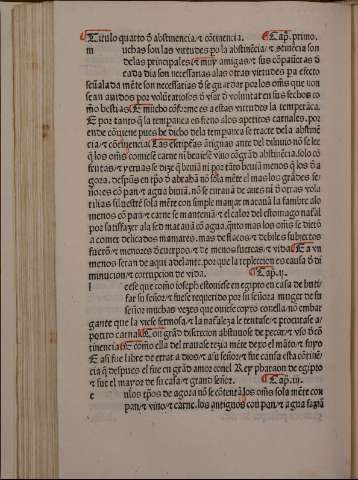 Titulo quarto đ abstinencia/ ⁊ cōtinencia. Cap̄. primo.
m uchas son las virtudes po la abstinēcia/ ⁊ ꝯtinēcia son
delas principales/ ⁊ muy amigas/ ⁊ sus cōpañeras đ
cada dia son necessarias alas otras virtudes pa efecto
señalada mēte son necessarias đ se guardar por los om̄s que non
sean auidos por volūtariosos đ vsar đ voluntat en sus fechos co
mo bestias/ E mucho cōforme es a estas virtudes la temperāça.
E por tanto q̄ la temperança es freno alos apetitos carnales. por
ende cōuiene pues he dicho dela temperança se tracte dela abstinē
cia/ ⁊ cōtinencia/ Las escripturas antiguas ante del diluuio nō se lee
q̄ los om̄s comiesē carne ni beuiesē vino cō grād abstinēcia. solo cō
frutas/ ⁊ yeruas se dize q̄ biuiā ni por tāto biuiā menos q̄ los đ a
gora. despues en tp̄o đ abrahā nō sola mēte el mas los grādes se
ñores cō pan/ ⁊ agua biuiā. nō se curauā de aues ni đ otras vola
tilias siluestrēs sola mēte con simple manjar matauā la fambre alo
menos cō pan/ ⁊ carne se mantenīā/ ⁊ el calor del estomago natural
por satisfazer ala sed matauā cō agua. quāto mas los om̄s se dierō
a comer delicados manjares. mas de flacos/ ⁊ debiles subjectos
fuerō/ ⁊ menores đ cuerpos/ ⁊ de menos fuerças/ ⁊ vida/ E a vn
menos seran de aqui adelante. por que la repleccion es causa đ di
minucion/ ⁊ corrupcion de vida. Cap̄. ij.
l eese que como joseph estouiese en egipto en casa de buti
far su señor/ ⁊ fuese requerido por su señora muger de su
señor muchas vezes que ouiese coyto con ella/ nō embar
gante que la viese fermosa/ ⁊ la naturaleza le tentase/ ⁊ procurase a/
petito carnal/ Con grād discrecion abstuuose de pecar/ ⁊ vso đ cō
tinencia/ E como ella del trauase tezia mēte dexo el māto/ ⁊ fuyo
E asi fue libre de errar a dios/ ⁊ a su señor/ ⁊ fue causa esta cōtinē/
cia q̄ despues el fue en grād amor conel Rey pharaon de egipto
⁊ fue el mayor de su casa/ ⁊ grand señor. Cap̄. iij.
e nlos tp̄os de agora nō se cōtentā los om̄s sola mēte con
pan/ ⁊ vino/ ⁊ carne. los antiguos con pan/ ⁊ agua fazia